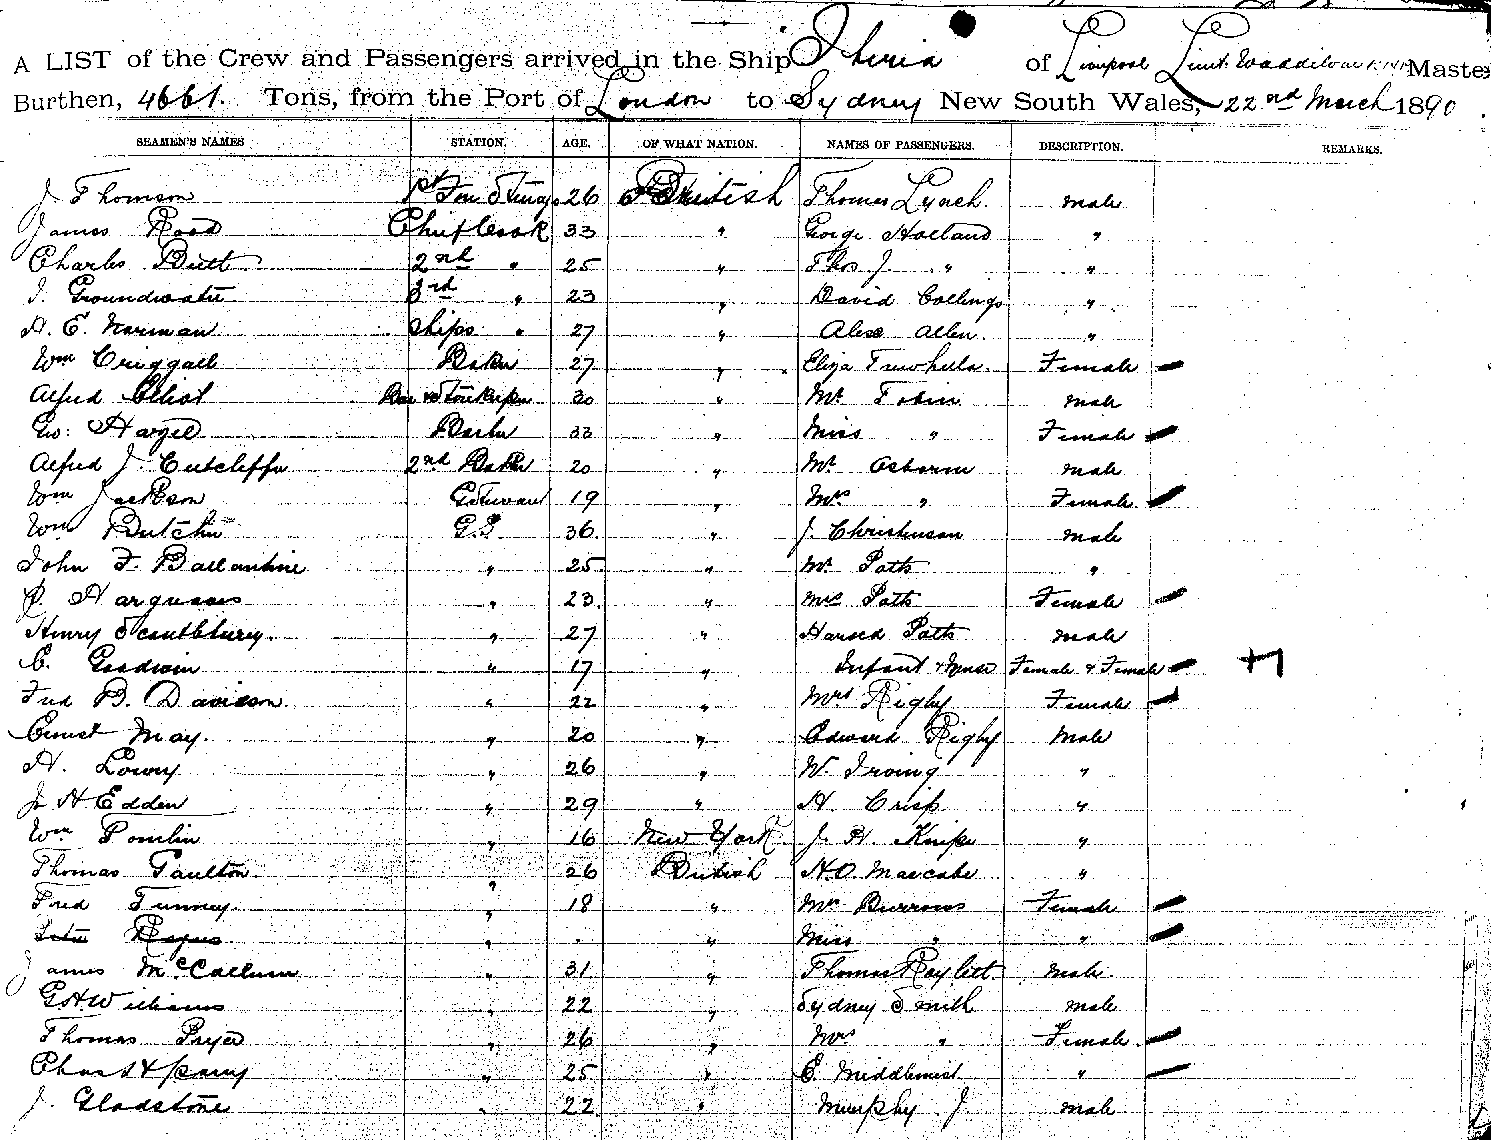 A LIST of the Crew and Passengers arrived in the Ship Iberia of Liverpool Lieut. Master
Burthen, 4661. Tons, from the Port of London to Sydney New South Wales, 22nd March 1890
SEAMEN'S NAMES STATION. AGE. OF WHAT NATION. NAMES OF PASSENGERS. DESCRIPTION. REMARKS.
J Thomson 26 British Thomas Lynch. male
James Rood Chief Cook 33 " George Holland "
Charles Butt 2nd " 25 " Thos J. " "
J. Groundwater 3rd " 23 " David Collings "
H. E. Norman Ships " 27 " Allen. "
Wm Criggall Baker 27 " Eliza Trewhella. Female
Alfred Elliot 30 " Mr Tobin male
Geo: 33 " Miss " Female
Alfred J. Cutcliffe 2nd Baker 20 " Mr Osborne male
Wm Jackson 19 " Mrs " Female
Wm Butchin G.S 36 " J. Christenson male
John F. Ballantine " 25 " Mr Path "
Harqueses " 23 " Mrs Path Female
Henry Scantlebury. " 27 " Harold Path male
C. Goodwin " 17 " Infant & Nurse Female & Female
Fred B. Davieson " 22 " Mrs Rigby Female
Ernest May. " 20 " Edward Rigby Male
H. Lowry " 26 " W. Irving "
J H Edden " 29 " H Crisp "
Wm Tomlin " 16 New York J. H. Knipe "
Thomas Taulton. " 26 British H.O. Marcake "
Fred Tunney. " 18 " Mrs Burrows Female
" . " Miss " "
James McCallum " 31 " Thomas Raylitt male
G.H. Williams " 22 " Sydney Smith male
Thomas Pryer " 26 " Mrs " Female
Parry " 25 " E. Middlemist "
J. Gladstone " 22 " Murphy J. male